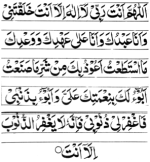 اَللّٰهُمَّ اَنْتَ رَبِّیْ لَاۤ اِلٰهَ اِلَّاۤ اَنْتَ خَلَقْتَنِیْ
وَاَنَا عَبْدُكَ وَاَنَا عَلٰی عَهْدِكَ وَوَعْدِكَ
مَا اسْتَطَعْتُ اَعُوْذُ بِكَ مِنْ شَرِّ مَا صَنَعْتُ
اَبُوْٓءُ لَكَ بِنِعْمَتِكَ عَلَیَّ وَاَبُوْٓءُ بِذَنْۢبِیْ
فَاغْفِرْلِیْ ذُنُوْبِیْ فَاِنَّهٗ لَا یَغْفِرُ الذُّنُوْبَ
اِلَّاۤ اَنْتَ